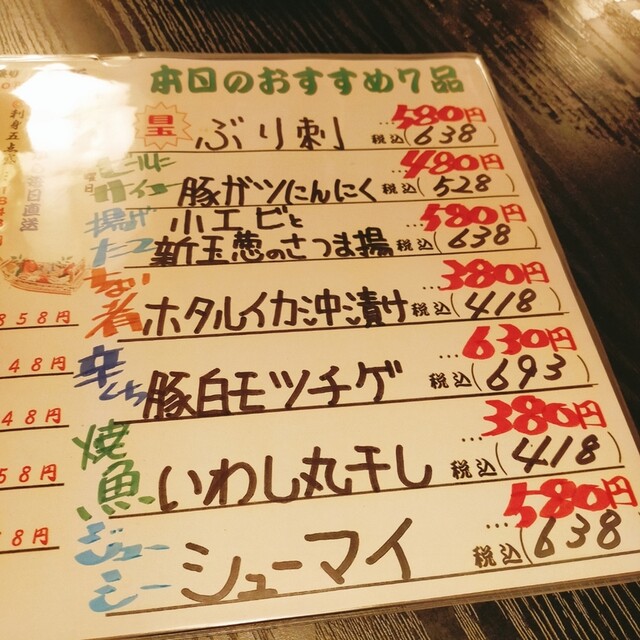 本日のおすすめ7品
目玉 ぶり刺 580円 税込(638)
ビールに サイコー 豚ガツにんにく …480円 税込(528)
揚げたて 小エビと 新玉葱のさつま揚 …580円 税込(638)
ホタルイカ沖漬け …380円 税込(418)
辛くち 豚白モツチゲ …630円 税込(693)
焼魚 いわし丸干し …380円 税込(418)
ジューシー シューマイ …580円 税込(638)
直送
858円
48円
48円
58円
8円